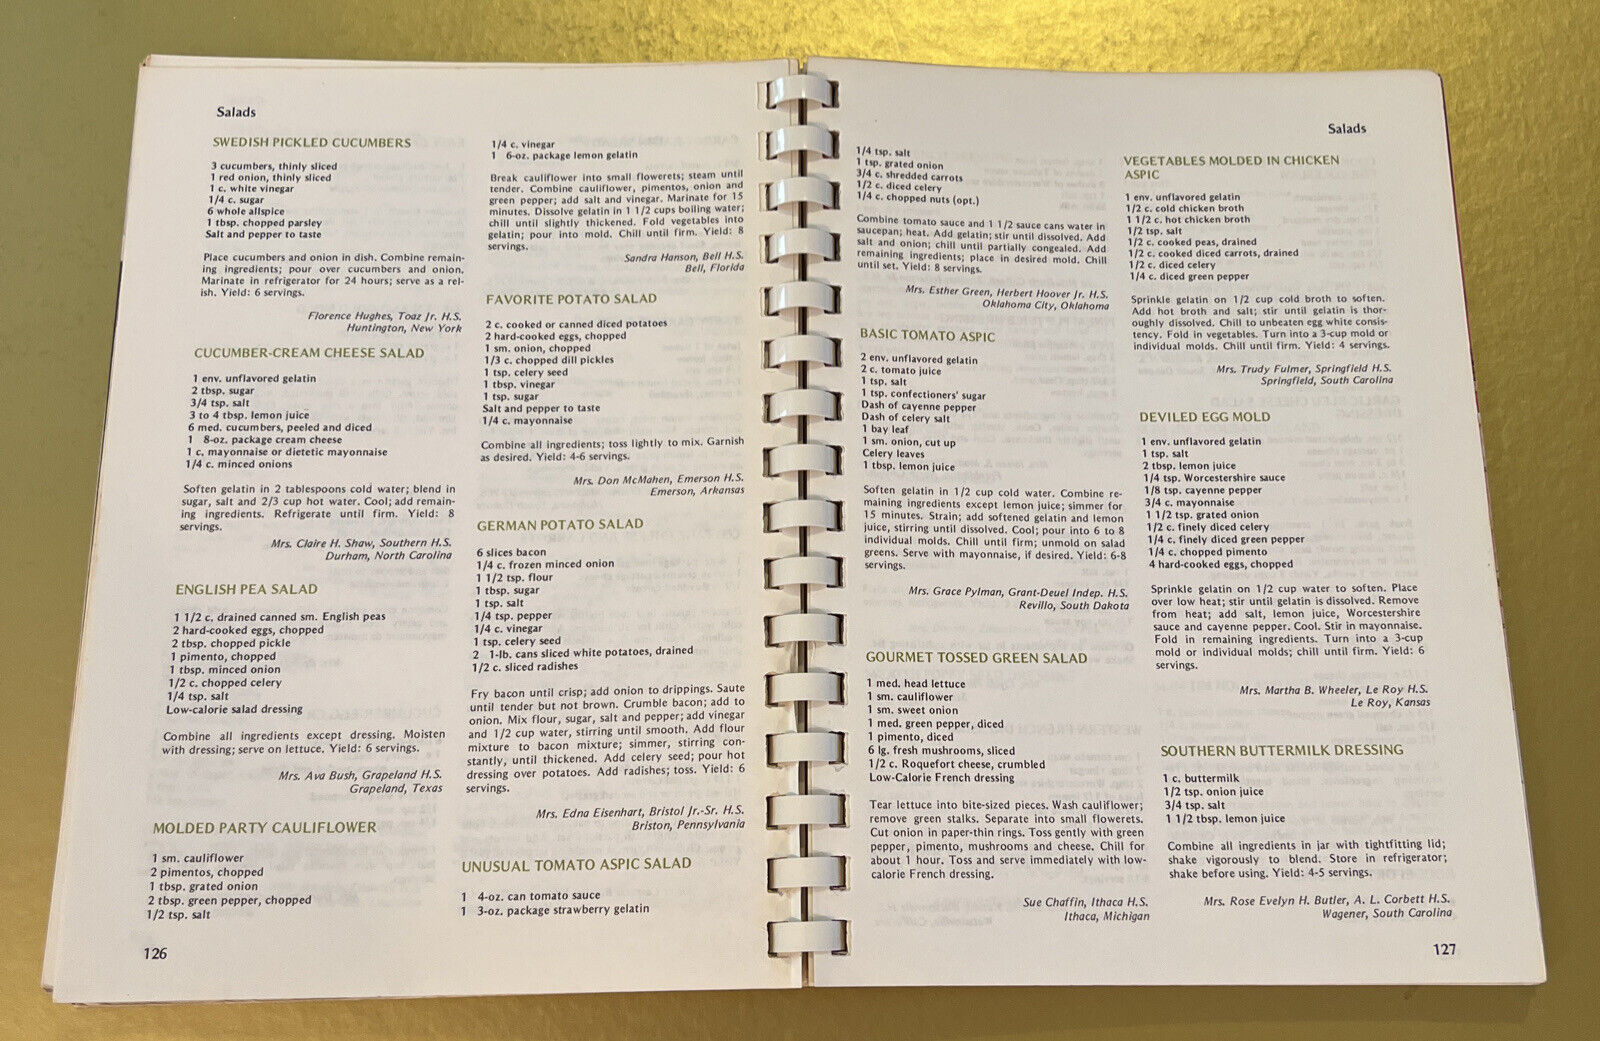 Salads
SWEDISH PICKLED CUCUMBERS
3 cucumbers, thinly sliced
1 red onion, thinly sliced
1 c. white vinegar
1/4 c. sugar
6 whole allspice
1 tbsp. chopped parsley
Salt and pepper to taste
Place cucumbers and onion in dish. Combine remain-
ing ingredients; pour over cucumbers and onion.
Marinate in refrigerator for 24 hours; serve as a rel-
ish. Yield: 6 servings.
Florence Hughes, Toaz Jr. H.S.
Huntington, New York
CUCUMBER-CREAM CHEESE SALAD
1 env. unflavored gelatin
2 tbsp. sugar
3/4 tsp. salt
3 to 4 tbsp. lemon juice
6 med. cucumbers, peeled and diced
1 8-oz. package cream cheese
1 c. mayonnaise or dietetic mayonnaise
1/4 c. minced onions
Soften gelatin in 2 tablespoons cold water; blend in
sugar, salt and 2/3 cup hot water. Cool; add remain-
ing ingredients. Refrigerate until firm. Yield: 8
servings.
Mrs. Claire H. Shaw, Southern H.S.
Durham, North Carolina
ENGLISH PEA SALAD
1 1/2 c. drained canned sm. English peas
2 hard-cooked eggs, chopped
2 tbsp. chopped pickle
1 pimento, chopped
1 tbsp. minced onion
1/2 c. chopped celery
1/4 tsp. salt
Low-calorie salad dressing
Combine all ingredients except dressing. Moisten
with dressing; serve on lettuce. Yield: 6 servings.
Mrs. Ava Bush, Grapeland H.S.
Grapeland, Texas
MOLDED PARTY CAULIFLOWER
1 sm. cauliflower
2 pimentos, chopped
1 tbsp. grated onion
2 tbsp. green pepper, chopped
1/2 tsp. salt
126
1/4 c. vinegar
1 6-oz. package lemon gelatin
Break cauliflower into small flowerets; steam until
tender. Combine cauliflower, pimentos, onion and
green pepper; add salt and vinegar. Marinate for 15
minutes. Dissolve gelatin in 1 1/2 cups boiling water;
chill until slightly thickened. Fold vegetables into
gelatin; pour into mold. Chill until firm. Yield: 8
servings.
Sandra Hanson, Bell H.S.
Bell, Florida
FAVORITE POTATO SALAD
2 c. cooked or canned diced potatoes
2 hard-cooked eggs, chopped
1 sm. onion, chopped
1/3 c. chopped dill pickles
1 tsp. celery seed
1 tbsp. vinegar
1 tsp. sugar
Salt and pepper to taste
1/4 c. mayonnaise
Combine all ingredients; toss lightly to mix. Garnish
as desired. Yield: 4-6 servings.
Mrs. Don McMahen, Emerson H.S.
Emerson, Arkansas
GERMAN POTATO SALAD
6 slices bacon
1/4 c. frozen minced onion
1 1/2 tsp. flour
1 tbsp. sugar
1 tsp. salt
1/4 tsp. pepper
1/4 c. vinegar
1 tsp. celery seed
2 1-lb. cans sliced white potatoes, drained
1/2 c. sliced radishes
Fry bacon until crisp; add onion to drippings. Saute
until tender but not brown. Crumble bacon; add to
onion. Mix flour, sugar, salt and pepper; add vinegar
and 1/2 cup water, stirring until smooth. Add flour
mixture to bacon mixture; simmer, stirring con-
stantly, until thickened. Add celery seed; pour hot
dressing over potatoes. Add radishes; toss. Yield: 6
servings.
Mrs. Edna Eisenhart, Bristol Jr.-Sr. H.S.
Briston, Pennsylvania
UNUSUAL TOMATO ASPIC SALAD
1 4-oz. can tomato sauce
1 3-oz. package strawberry gelatin
Salads
1/4 tsp. salt
1 tsp. grated onion
3/4 c. shredded carrots
1/2 c. diced celery
1/4 c. chopped nuts (opt.)
Combine tomato sauce and 1 1/2 sauce cans water in
saucepan; heat. Add gelatin; stir until dissolved. Add
salt and onion; chill until partially congealed. Add
remaining ingredients; place in desired mold. Chill
until set. Yield: 8 servings.
Mrs. Esther Green, Herbert Hoover Jr. H.S.
Oklahoma City, Oklahoma
BASIC TOMATO ASPIC
2 env. unflavored gelatin
2 c. tomato juice
1 tsp. salt
1 tsp. confectioners' sugar
Dash of cayenne pepper
Dash of celery salt
1 bay leaf
1 sm. onion, cut up
Celery leaves
1 tbsp. lemon juice
Soften gelatin in 1/2 cup cold water. Combine re-
maining ingredients except lemon juice; simmer for
15 minutes. Strain; add softened gelatin and lemon
juice, stirring until dissolved. Cool; pour into 6 to 8
individual molds. Chill until firm; unmold on salad
greens. Serve with mayonnaise, if desired. Yield: 6-8
servings.
Mrs. Grace Pylman, Grant-Deuel Indep. H.S.
Revillo, South Dakota
GOURMET TOSSED GREEN SALAD
1 med. head lettuce
1 sm. cauliflower
1 sm. sweet onion
1 med. green pepper, diced
1 pimento, diced
6 lg. fresh mushrooms, sliced
1/2 c. Roquefort cheese, crumbled
Low-Calorie French dressing
Tear lettuce into bite-sized pieces. Wash cauliflower;
remove green stalks. Separate into small flowerets.
Cut onion in paper-thin rings. Toss gently with green
pepper, pimento, mushrooms and cheese. Chill for
about 1 hour. Toss and serve immediately with low-
calorie French dressing.
Sue Chaffin, Ithaca H.S.
Ithaca, Michigan
VEGETABLES MOLDED IN CHICKEN
ASPIC
1 env. unflavored gelatin
1/2 c. cold chicken broth
1 1/2 c. hot chicken broth
1/2 tsp. salt
1/2 c. cooked peas, drained
1/2 c. cooked diced carrots, drained
1/2 c. diced celery
1/4 c. diced green pepper
Sprinkle gelatin on 1/2 cup cold broth to soften.
Add hot broth and salt; stir until gelatin is thor-
oughly dissolved. Chill to unbeaten egg white consis-
tency. Fold in vegetables. Turn into a 3-cup mold or
individual molds. Chill until firm. Yield: 4 servings.
Mrs. Trudy Fulmer, Springfield H.S.
Springfield, South Carolina
DEVILED EGG MOLD
1 env. unflavored gelatin
1 tsp. salt
2 tbsp. lemon juice
1/4 tsp. Worcestershire sauce
1/8 tsp. cayenne pepper
3/4 c. mayonnaise
1 1/2 tsp. grated onion
1/2 c. finely diced celery
1/4 c. finely diced green pepper
1/4 c. chopped pimento
4 hard-cooked eggs, chopped
Sprinkle gelatin on 1/2 cup water to soften. Place
over low heat; stir until gelatin is dissolved. Remove
from heat; add salt, lemon juice, Worcestershire
sauce and cayenne pepper. Cool. Stir in mayonnaise.
Fold in remaining ingredients. Turn into a 3-cup
mold or individual molds; chill until firm. Yield: 6
servings.
Mrs. Martha B. Wheeler, Le Roy H.S.
Le Roy, Kansas
SOUTHERN BUTTERMILK DRESSING
1 c. buttermilk
1/2 tsp. onion juice
3/4 tsp. salt
1 1/2 tbsp. lemon juice
Combine all ingredients in jar with tightfitting lid;
shake vigorously to blend. Store in refrigerator;
shake before using. Yield: 4-5 servings.
Mrs. Rose Evelyn H. Butler, A. L. Corbett H.S.
Wagener, South Carolina
127